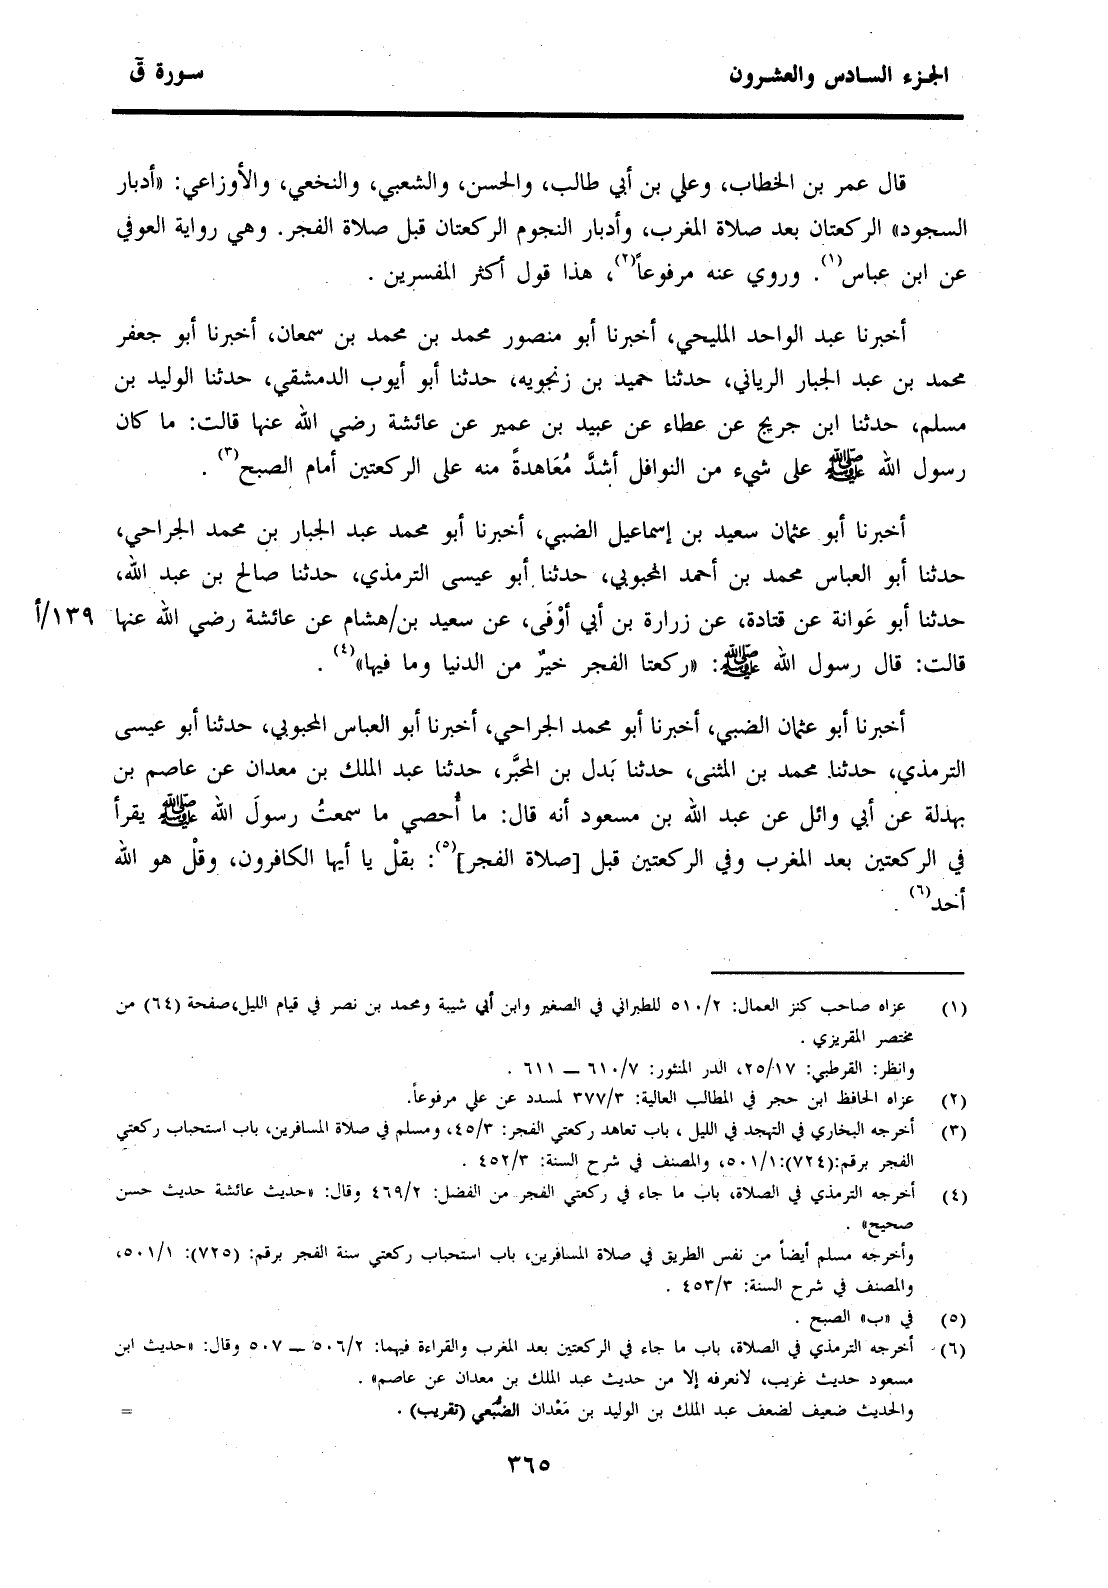 الجزء السادس والعشرون
سورة قٓ
قال عمر بن الخطاب، وعلي بن أبي طالب، والحسن، والشعبي، والنخعي، والأوزاعي: «أدبار
السجود» الركعتان بعد صلاة المغرب، وأدبار النجوم الركعتان قبل صلاة الفجر. وهي رواية العوفي
عن ابن عباس(١). وروي عنه مرفوعاً(٢)، هذا قول أكثر المفسرين .
أخبرنا عبد الواحد المليحي، أخبرنا أبو منصور محمد بن محمد بن سمعان، أخبرنا أبو جعفر
محمد بن عبد الجبار الرياني، حدثنا حميد بن زنجويه، حدثنا أبو أيوب الدمشقي، حدثنا الوليد بن
مسلم، حدثنا ابن جريج عن عطاء عن عبيد بن عمير عن عائشة رضي الله عنها قالت: ما كان
رسول الله ﷺ على شيء من النوافل أشدَّ مُعَاهدةً منه على الركعتين أمام الصبح(٣) .
أخبرنا أبو عثمان سعيد بن إسماعيل الضبي، أخبرنا أبو محمد عبد الجبار بن محمد الجراحي،
حدثنا أبو العباس محمد بن أحمد المحبوبي، حدثنا أبو عيسى الترمذي، حدثنا صالح بن عبد الله،
حدثنا أبو عَوانة عن قتادة، عن زرارة بن أبي أوْفَى، عن سعيد بن/هشام عن عائشة رضي الله عنها ١٣٩/أ
قالت: قال رسول الله ﷺ: «ركعتا الفجر خيرٌ من الدنيا وما فيها»(٤) .
أخبرنا أبو عثمان الضبي، أخبرنا أبو محمد الجراحي، أخبرنا أبو العباس المحبوبي، حدثنا أبو عيسى
الترمذي، حدثنا محمد بن المثنى، حدثنا بَدل بن المحبَّر، حدثنا عبد الملك بن معدان عن عاصم بن
بهدلة عن أبي وائل عن عبد الله بن مسعود أنه قال: ما أُحصي ما سمعتُ رسولَ الله ﷺ يقرأ
في الركعتين بعد المغرب وفي الركعتين قبل [صلاة الفجر](٥): بقلْ يا أيها الكافرون، وقلْ هو الله
أحد(٦) .
(١) عزاه صاحب كنز العمال: ٥١٠/٢ للطبراني في الصغير وابن أبي شيبة ومحمد بن نصر في قيام الليل،صفحة (٦٤) من
مختصر المقريزي .
وانظر: القرطبي: ٢٥/١٧، الدر المنثور: ٦١٠/٧ ــ ٦١١ .
(٢) عزاه الحافظ ابن حجر في المطالب العالية: ٣٧٧/٣ لمسدد عن علي مرفوعاً.
(٣) أخرجه البخاري في التهجد في الليل ، باب تعاهد ركعتي الفجر: ٤٥/٣، ومسلم في صلاة المسافرين، باب استحباب ركعتي
الفجر برقم:(٧٢٤):٥٠١/١، والمصنف في شرح السنة: ٤٥٢/٣ .
(٤) أخرجه الترمذي في الصلاة، باب ما جاء في ركعتي الفجر من الفضل: ٤٦٩/٢ وقال: «حديث عائشة حديث حسن
صحيح» .
وأخرجه مسلم أيضاً من نفس الطريق في صلاة المسافرين، باب استحباب ركعتي سنة الفجر برقم: (٧٢٥): ٥٠١/١،
والمصنف في شرح السنة: ٤٥٣/٣ .
(٥) في «ب» الصبح .
(٦) أخرجه الترمذي في الصلاة، باب ما جاء في الركعتين بعد المغرب والقراءة فيهما: ٥٠٦/٢ ــ ٥٠٧ وقال: «حديث ابن
مسعود حديث غريب، لانعرفه إلا من حديث عبد الملك بن معدان عن عاصم» .
والحديث ضعيف لضعف عبد الملك بن الوليد بن مَعْدان الضُّبَعي (تقريب) . =
٣٦٥